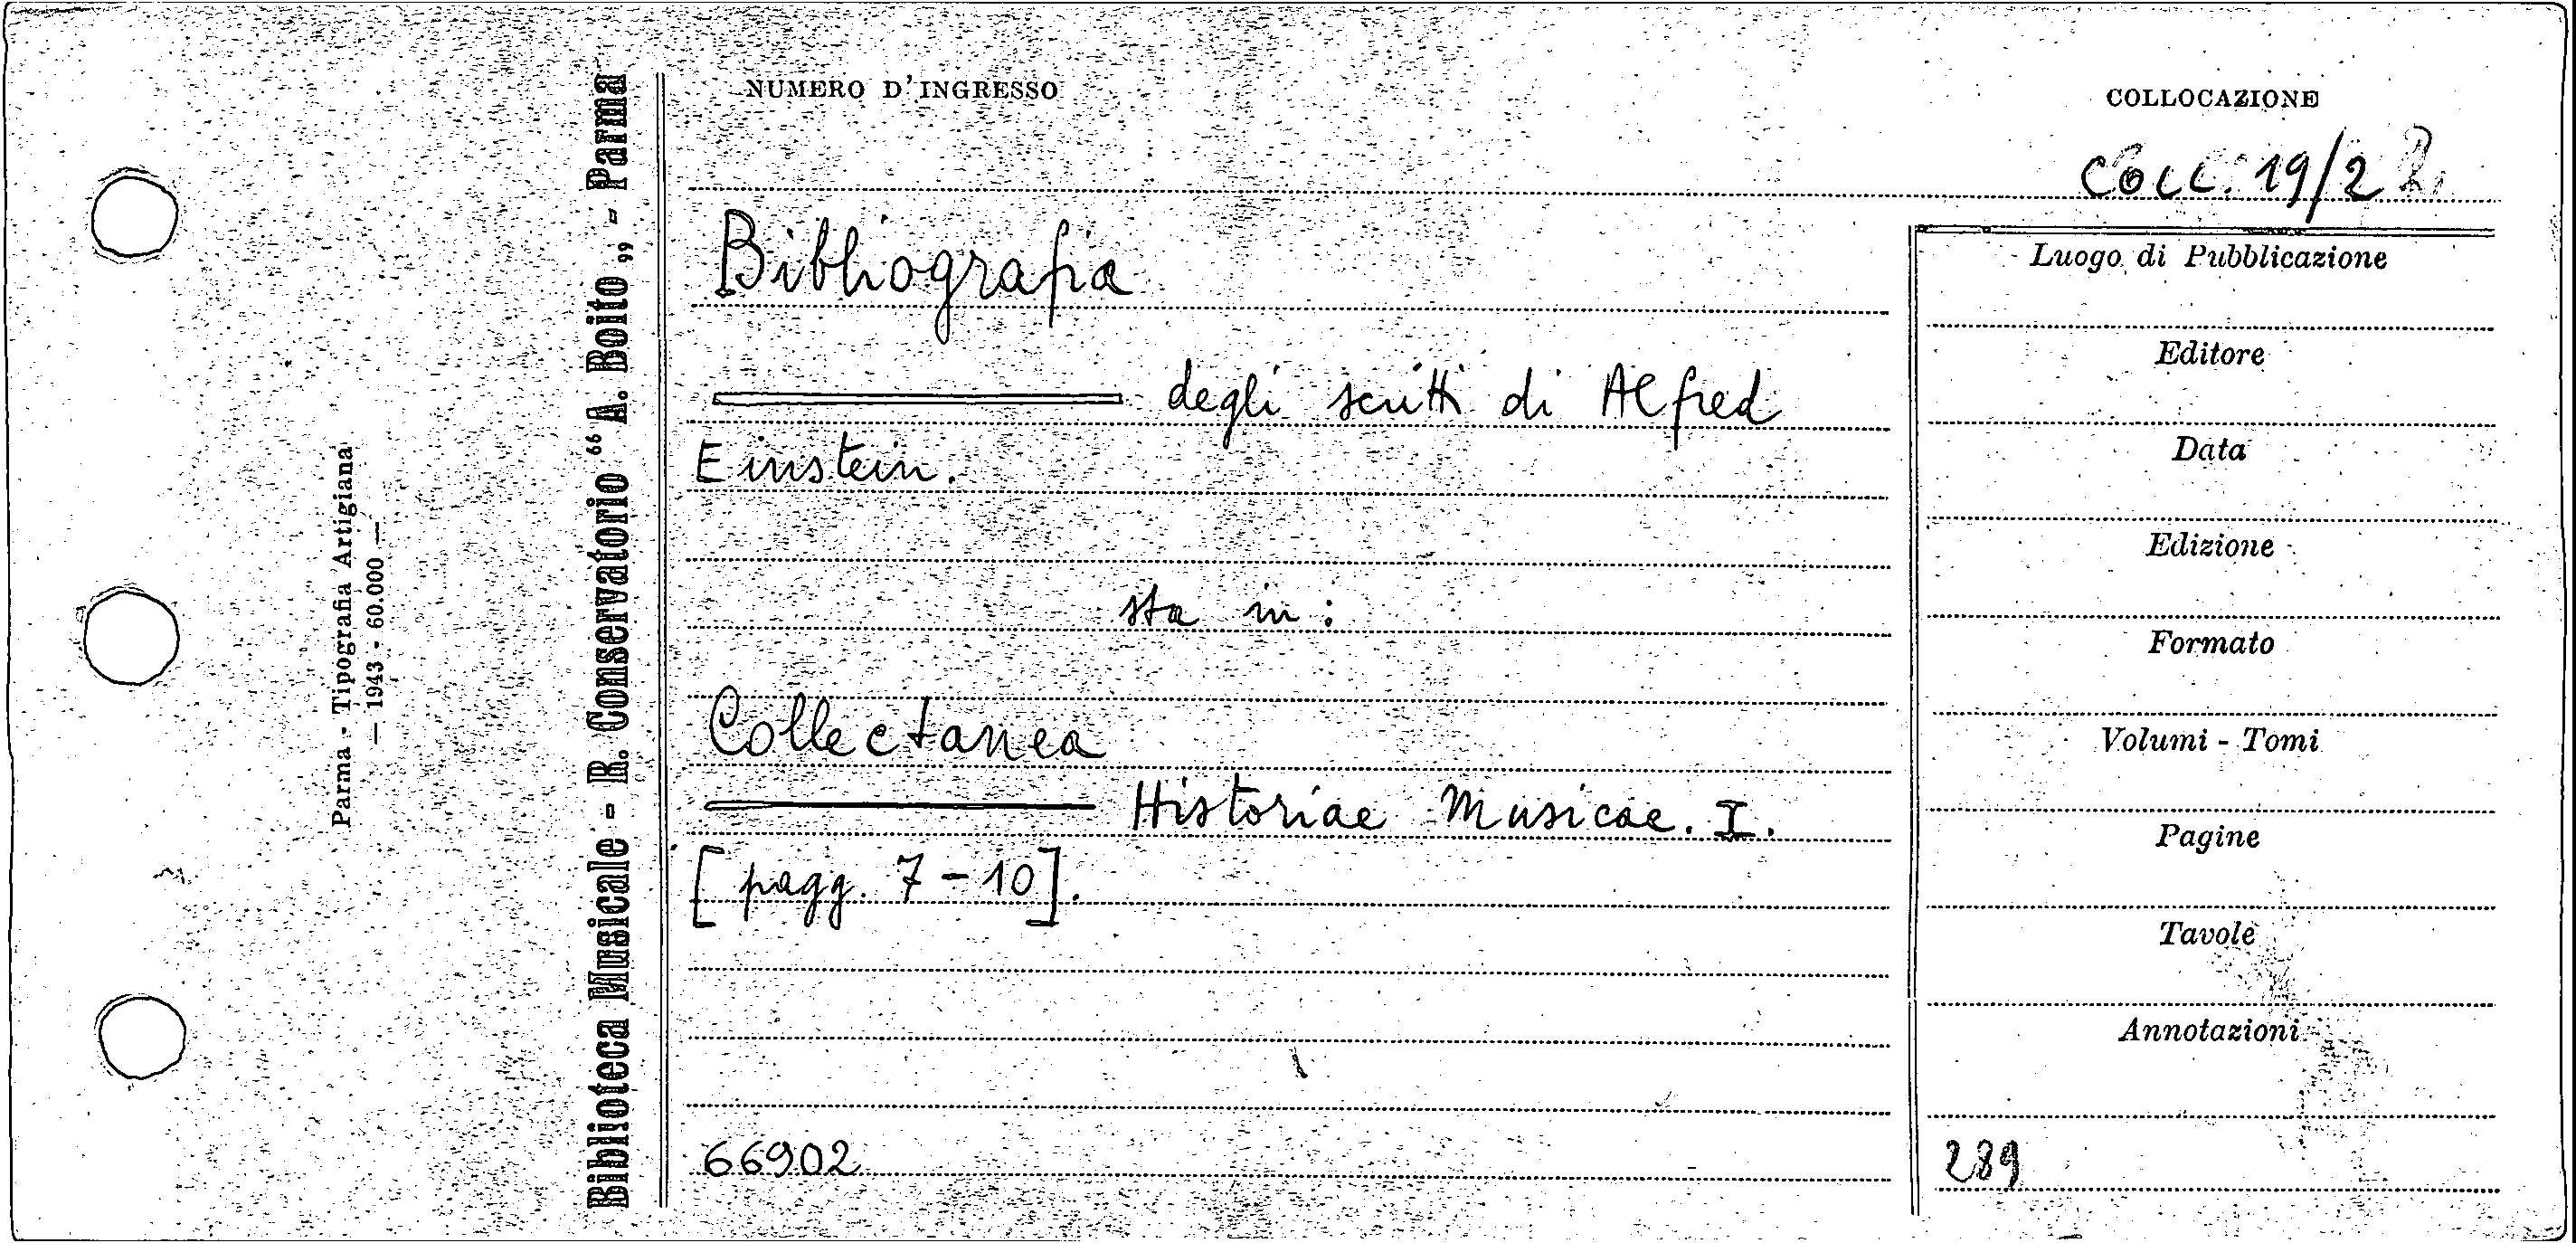 NUMERO D'INGRESSO
COLLOCAZIONE
Coll. 19/2
Bibliografia
degli scritti di Alfred
Einstein.
sta in:
Collectanea
Historiae Musicae. I.
[pagg. 7-10].
66902
Luogo di Pubblicazione
Editore
Data
Edizione
Formato
Volumi - Tomi
Pagine
Tavole
Annotazioni
289
Biblioteca Musicale - R. Conservatorio “A. Boito„ - Parma
Parma - Tipografia Artigiana
— 1943 - 60.000 —